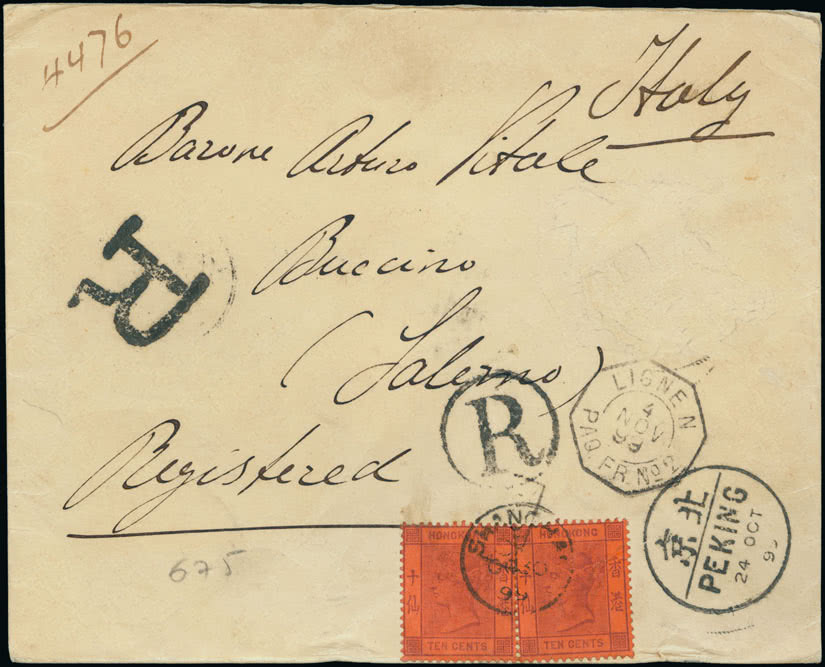 4476
Italy
Barone Arturo Vitale
Buccino
(Salerno)
Registered
R
R
LIGNE N
4
NOV
99
PAQ. FR. Nº 2
北京
PEKING
24 OCT
99
SHANGHAI
OC 30
99
HONG KONG
十仙
香港
TEN CENTS
HONG KONG
十仙
香港
TEN CENTS
675